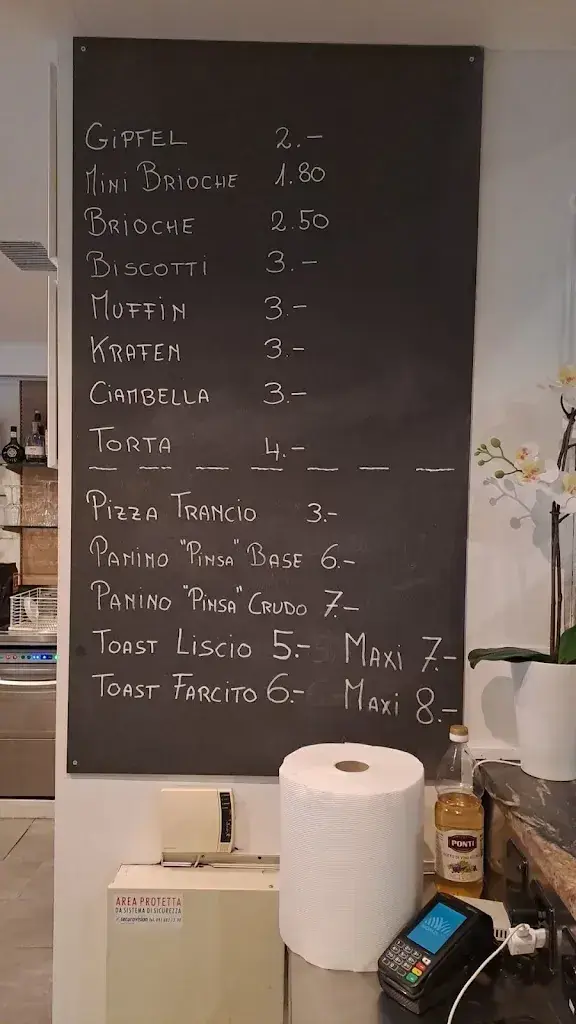 GIPFEL 2.-
MINI BRIOCHE 1.80
BRIOCHE 2.50
BISCOTTI 3.-
MUFFIN 3.-
KRAFEN 3.-
CIAMBELLA 3.-
TORTA 4.-
PIZZA TRANCIO 3.-
PANINO "PINSA" BASE 6.-
PANINO "PINSA" CRUDO 7.-
TOAST LISCIO 5.- MAXI 7.-
TOAST FARCITO 6.- MAXI 8.-
PONTI
AREA PROTETTA
DA SISTEMA DI SICUREZZA